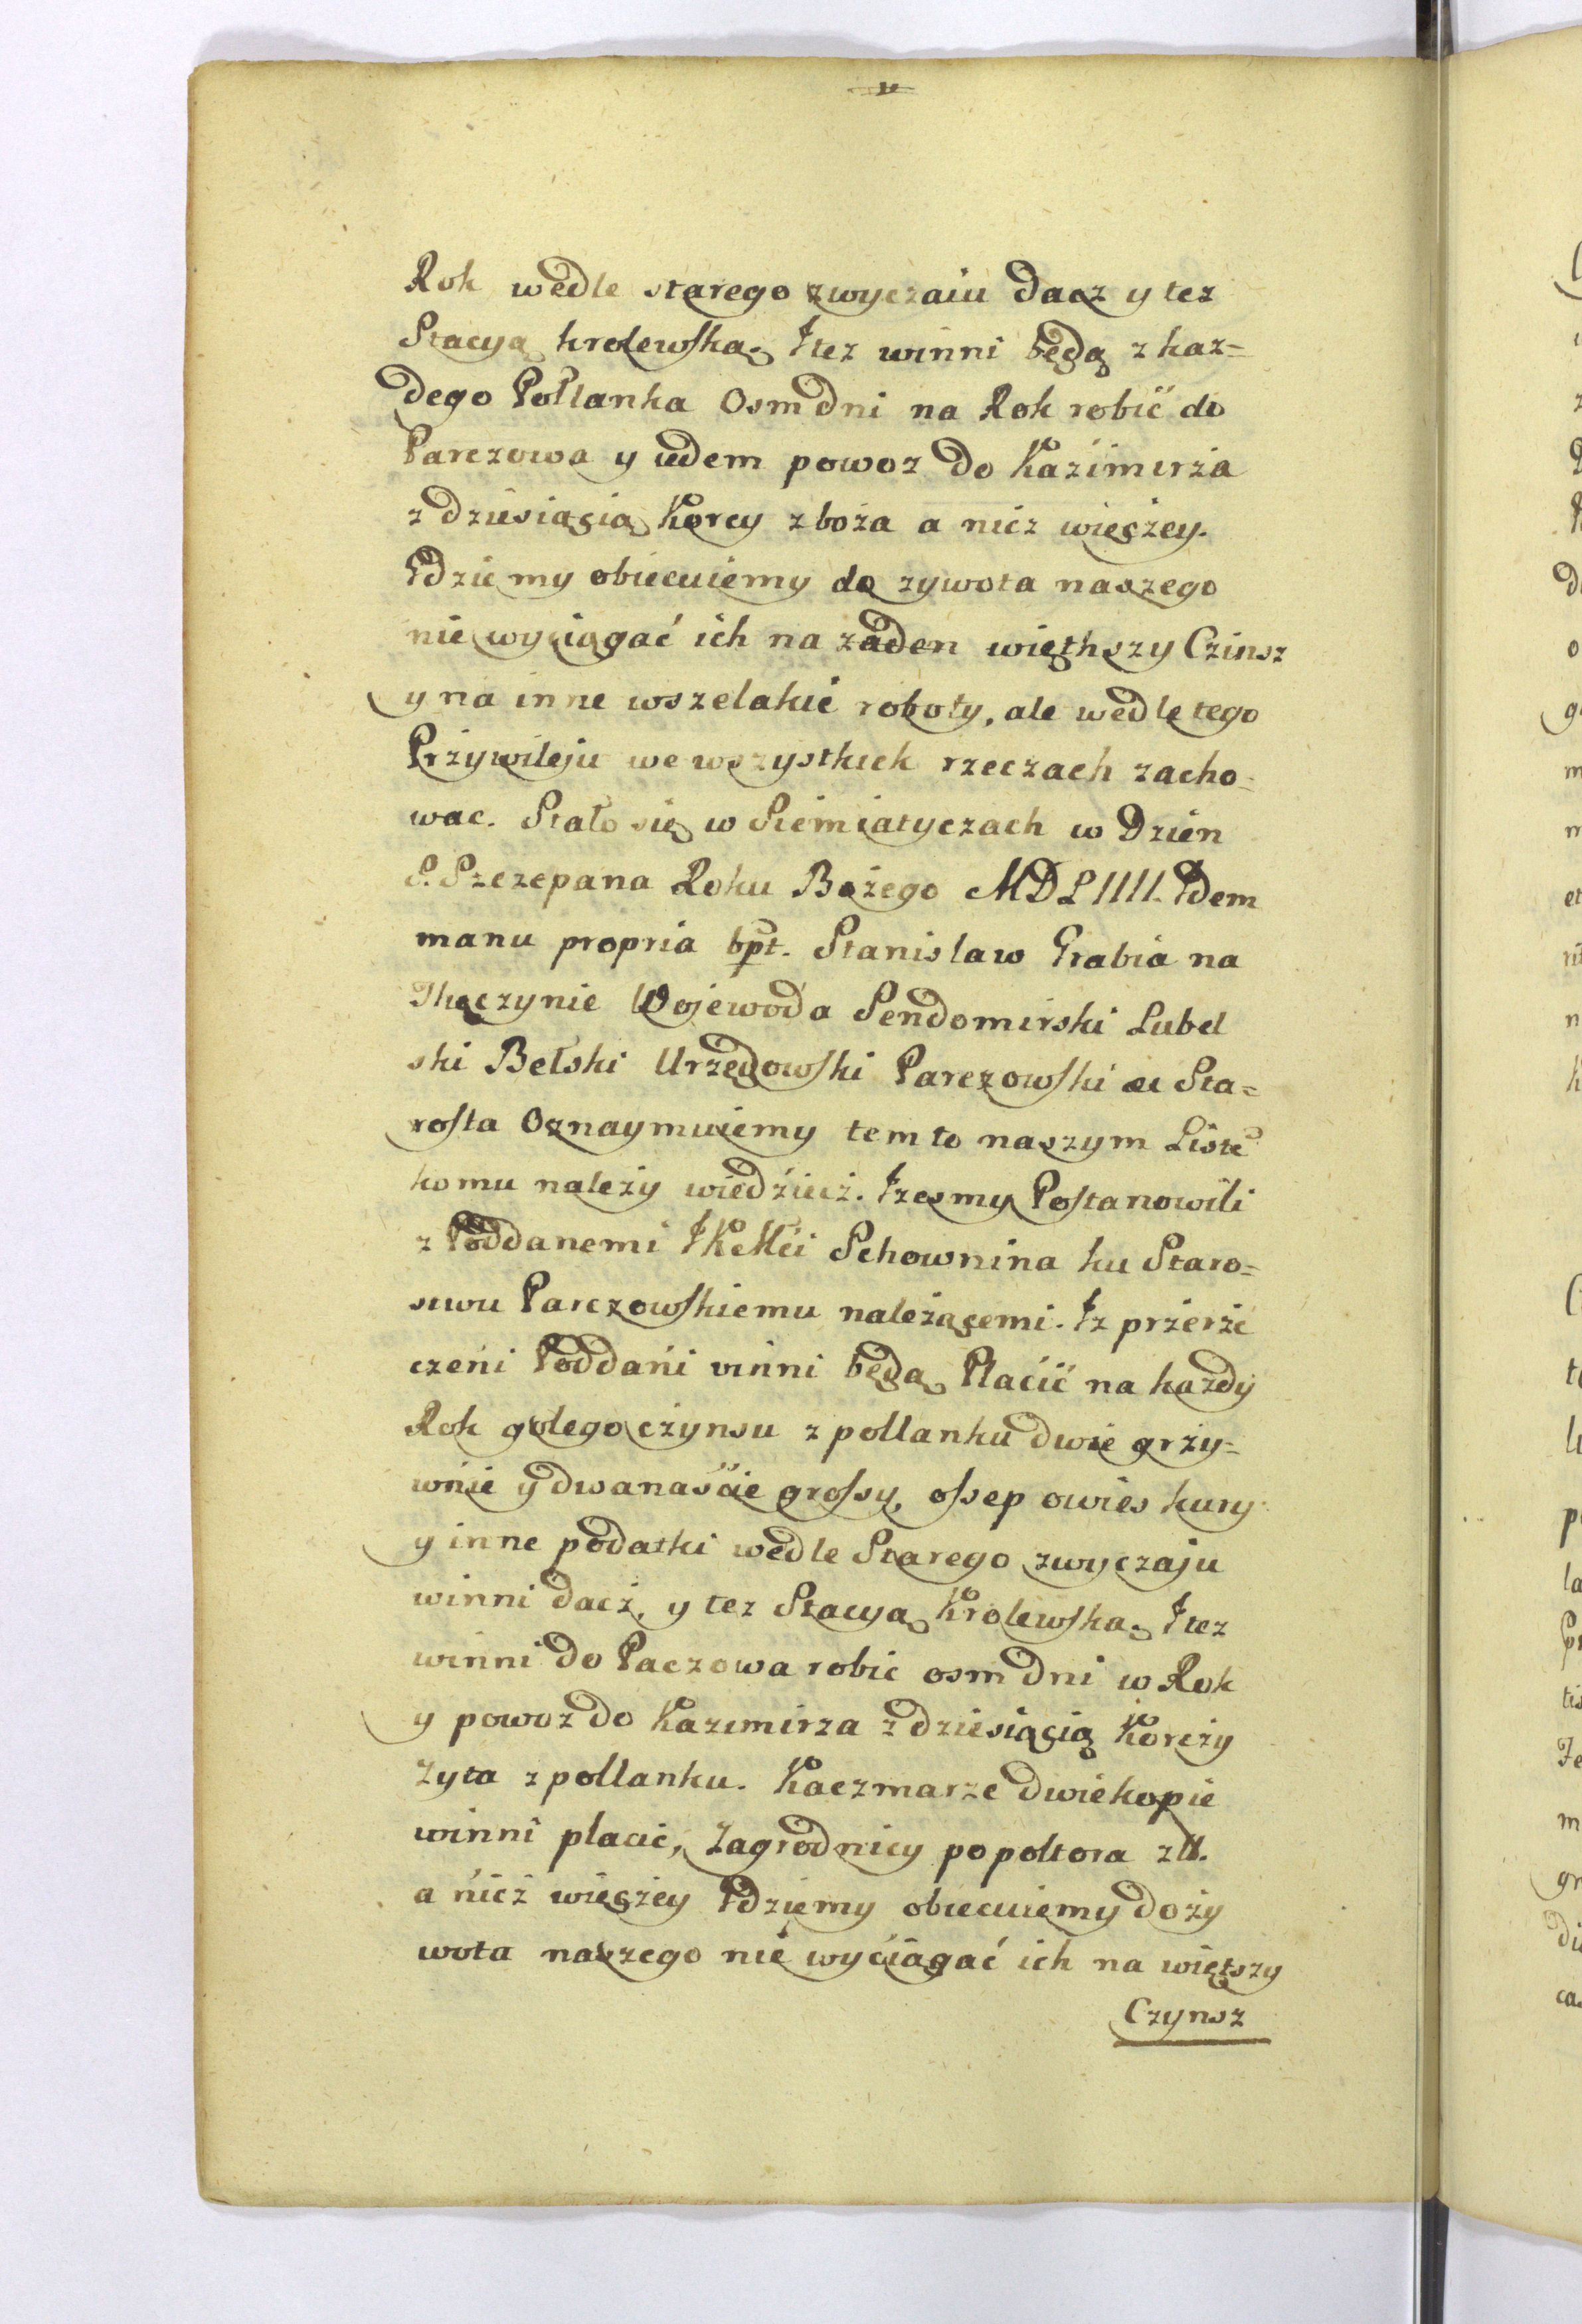 Rok wedle starego zwyczaiu dacz y tez
Stacyą krolewſką. Itez winni będą z kaz=
dego Połlanka Osm dni na Rok robić do
Parczowa y iedem powoz do Kazimirża
z dziesiącią Korcy zboża a nicz więczey.
Gdzie my obiecuiemy do zywota naszego
nie wyciągać ich na zaden więthszy Czinsz
y na inne wszelakie roboty, ale wedle tego
Przywileju we wszystkick rzeczach zacho=
wac. Stało się w Siemiatyczach w Dzien
S. Szczepana Roku Bożego MDLIIII. Idem
manu propria bpt. Stanislaw Grabia na
Thęczynie Wojewoda Sendomirski Lubel
ski Bełski Urzędowſki Parczowſki et Sta=
roſta Oznaymuiemy tem to naszym Liste
komu należy wiedźiecż. Izesmy Poſtanowili
z Poddanemi IKMći Sehownina ku Staro=
stwu Parczowſkiemu należącemi. Iz przerże
czeńi Poddańi vinni będą Płaćić na każdy
Rok golego czynsu z pollanku dwie grzy=
wńie y dwanaśćie groſsy, oſsep owies kury
y inne podatki wedle Starego zwyczaju
winni dacż, y tez Stacyą Krolewſką. Itez
winni do Paczowa robic osm dni w Rok
y powoz do Kazimirza z dziesiącią Korcży
Zyta z pollanku. Kaczmarze dwie kopie
winni placic, Zagrodnicy po poltora zll.
a nicż więcżey Gdziemy obiecuiemy do ży
wota naszego nie wyćiągać ich na większy
Czynsz